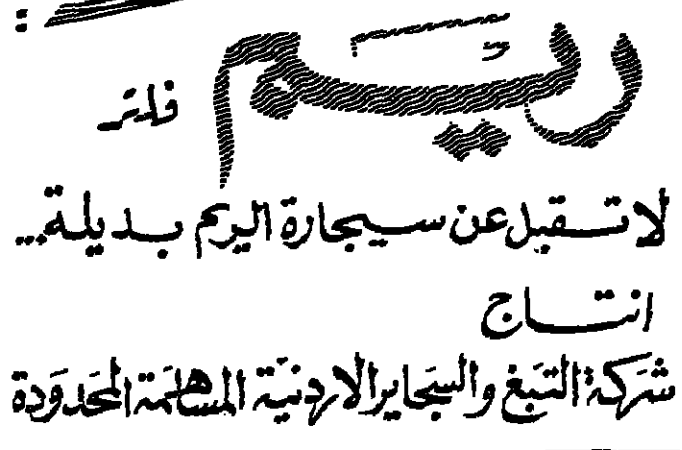 ريم
فلتر
لا تقبل عن سيجارة الريم بديلة...
انتاج
شركة التبغ والسجاير الاردنية المساهمة المحدودة